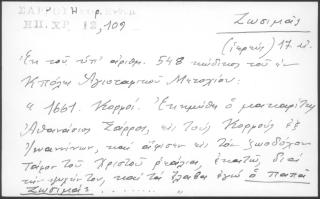 ΣΑΡΡΟΥ
ΗΠ. ΧΡ. 12, 109
Ζωσιμᾶς
(ἱερεύς) 17 αἰ.
Ἐκ τοῦ ὑπ' ἀριθμ. 548 κώδικος τοῦ ἐν
Κπόλει Ἁγιοταφιτικοῦ Μετοχίου:
" 1661. Κορμοί. Ἐκοιμήθη ὁ μακαρίτης
Ἀθανάσιος Σάρρος, εἰς τοὺς Κορμούς ἐξ
Ἰωαννίνων, καὶ ἄφησεν εἰς τὸν ζωοδόχον
Τάφον τοῦ Χριστοῦ ρεάλια, ἑκατόν, διὰ
τὴν ψυχήν του, καὶ τὰ ἔλαβα ἐγὼ ὁ παπᾶ
Ζωσιμᾶς